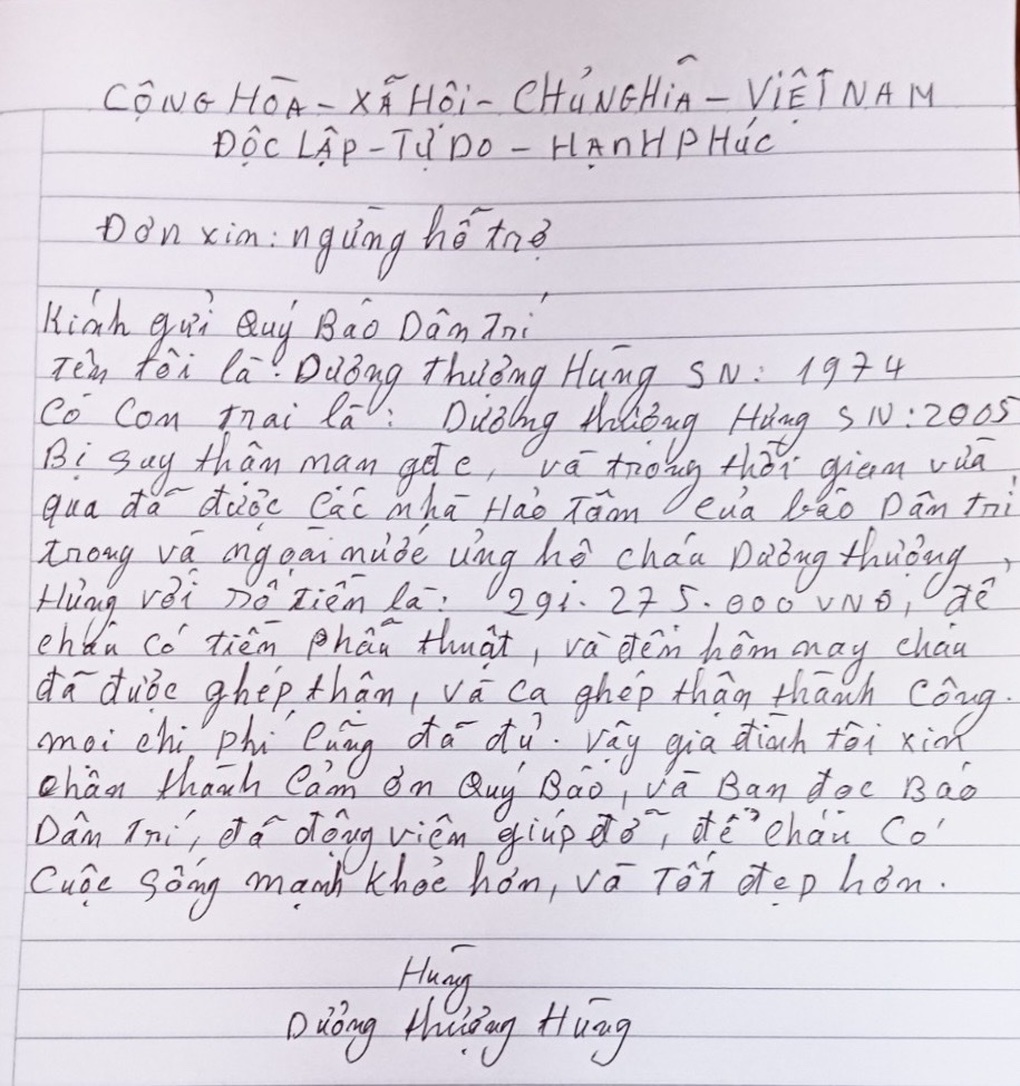 CỘNG HÒA - XÃ HÔI - CHỦ NGHĨA - VIỆT NAM
ĐỘC LẬP - TỰ DO - HẠNH PHÚC
Đơn xin: ngừng hỗ trợ
Kính gửi Quý Báo Dân Trí
Tên tôi là: Dương Thượng Hùng SN: 1974
Có con trai là: Dương thượng Hưng SN: 2005
Bị suy thân man gđ c, và trong thời gian vừa
qua đã được các nhà Hảo Tâm của báo Dân trí
trong và ngoài nước ủng hộ cháu Dương thượng
Hưng với số tiền là: 291.275.000 VNĐ, để
cháu có tiền phẫu thuật, và đến hôm nay cháu
đã được ghép thận, và ca ghép thận thành công.
mọi chi phí cũng đã đủ. vậy gia đình tôi xin
chân thành cảm ơn Quý Báo, và Bạn đọc Báo
Dân Trí, đã động viên giúp đỡ, để cháu có
cuộc sống mạnh khỏe hơn, và Tốt đẹp hơn.
Hùng
Dương thượng Hùng